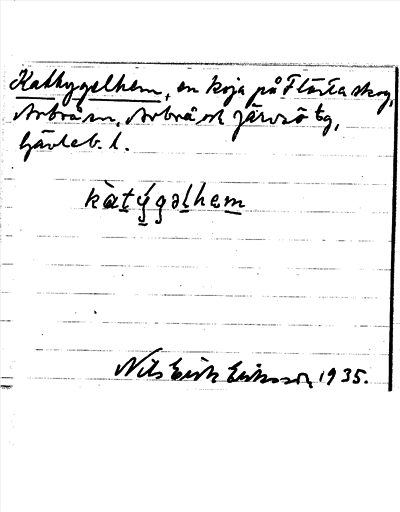 Kattygelhem, en koja på Flästa skog,
Arbrå sn, Arbrå och Järvsö tg,
Gävleb. l.
kàtýgəlhem
Nils Erik Eriksson, 1935.